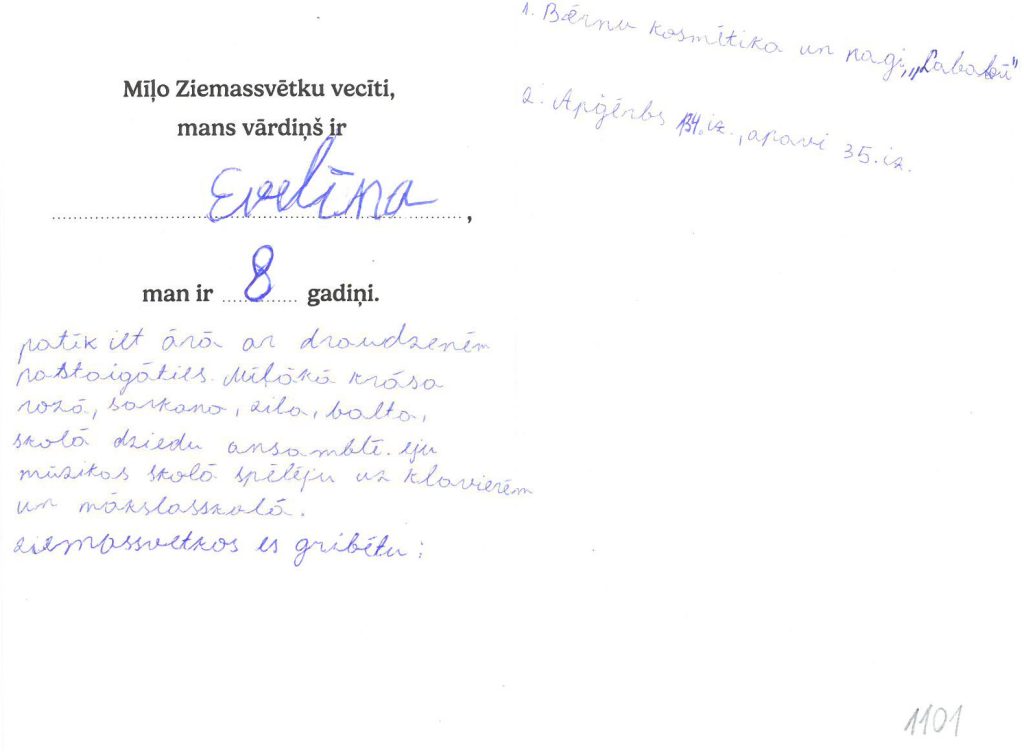 Mīļo Ziemassvētku vecīti,
mans vārdiņš ir
Evelīna,
man ir 8 gadiņi.
patīk iet ārā ar draudzenēm
pastaigāties. Mīļākā krāsa
rozā, sarkana, zila, balta,
skolā dziedu ansamblī. eju
mūzikas skolā spēlēju uz klavierēm
un mākslasskolā.
ziemassvetkos es gribētu:
1. Bērnu kosmētika un nagi, „Lababū"
2. Apģērbs 134. iz., apavi 35. iz.
1101